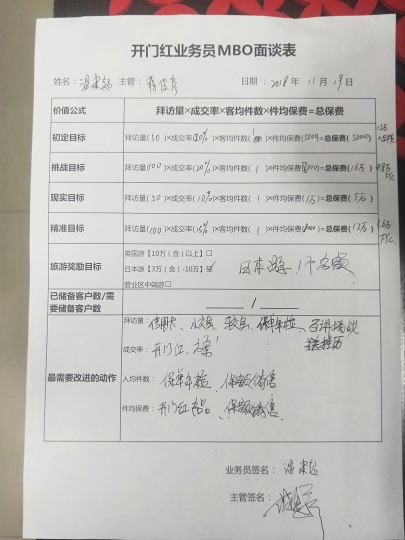 开门红业务员MBO面谈表
姓名： 主管： 日期：2018年11月19日
价值公式 拜访量×成交率×客均件数×件均保费=总保费
初定目标 拜访量(50)×成交率(20%)×客均件数(1)×件均保费(5000)=总保费(50000)
挑战目标 拜访量(100)×成交率(20%)×客均件数(1)×件均保费(8000)=总保费(16万)
现实目标 拜访量(50)×成交率(10%)×客均件数(1)×件均保费(1万)=总保费(5万)
精准目标 拜访量(100)×成交率(15%)×客均件数(1)×件均保费(8000)=总保费(12万)
旅游奖励目标
英国游【10万（含）以上】□
日本游【3万（含）-10万】☑ 日本游 1个名额
营业区中端游□
已储备客户数/需要储备客户数 /
最需要改进的动作
拜访量：信用卡、 保单年检、
送挂历
成交率：开门红、
人均件数：保单年检、保额销售
件均保费：开门红产品、保额销售
业务员签名：
主管签名：